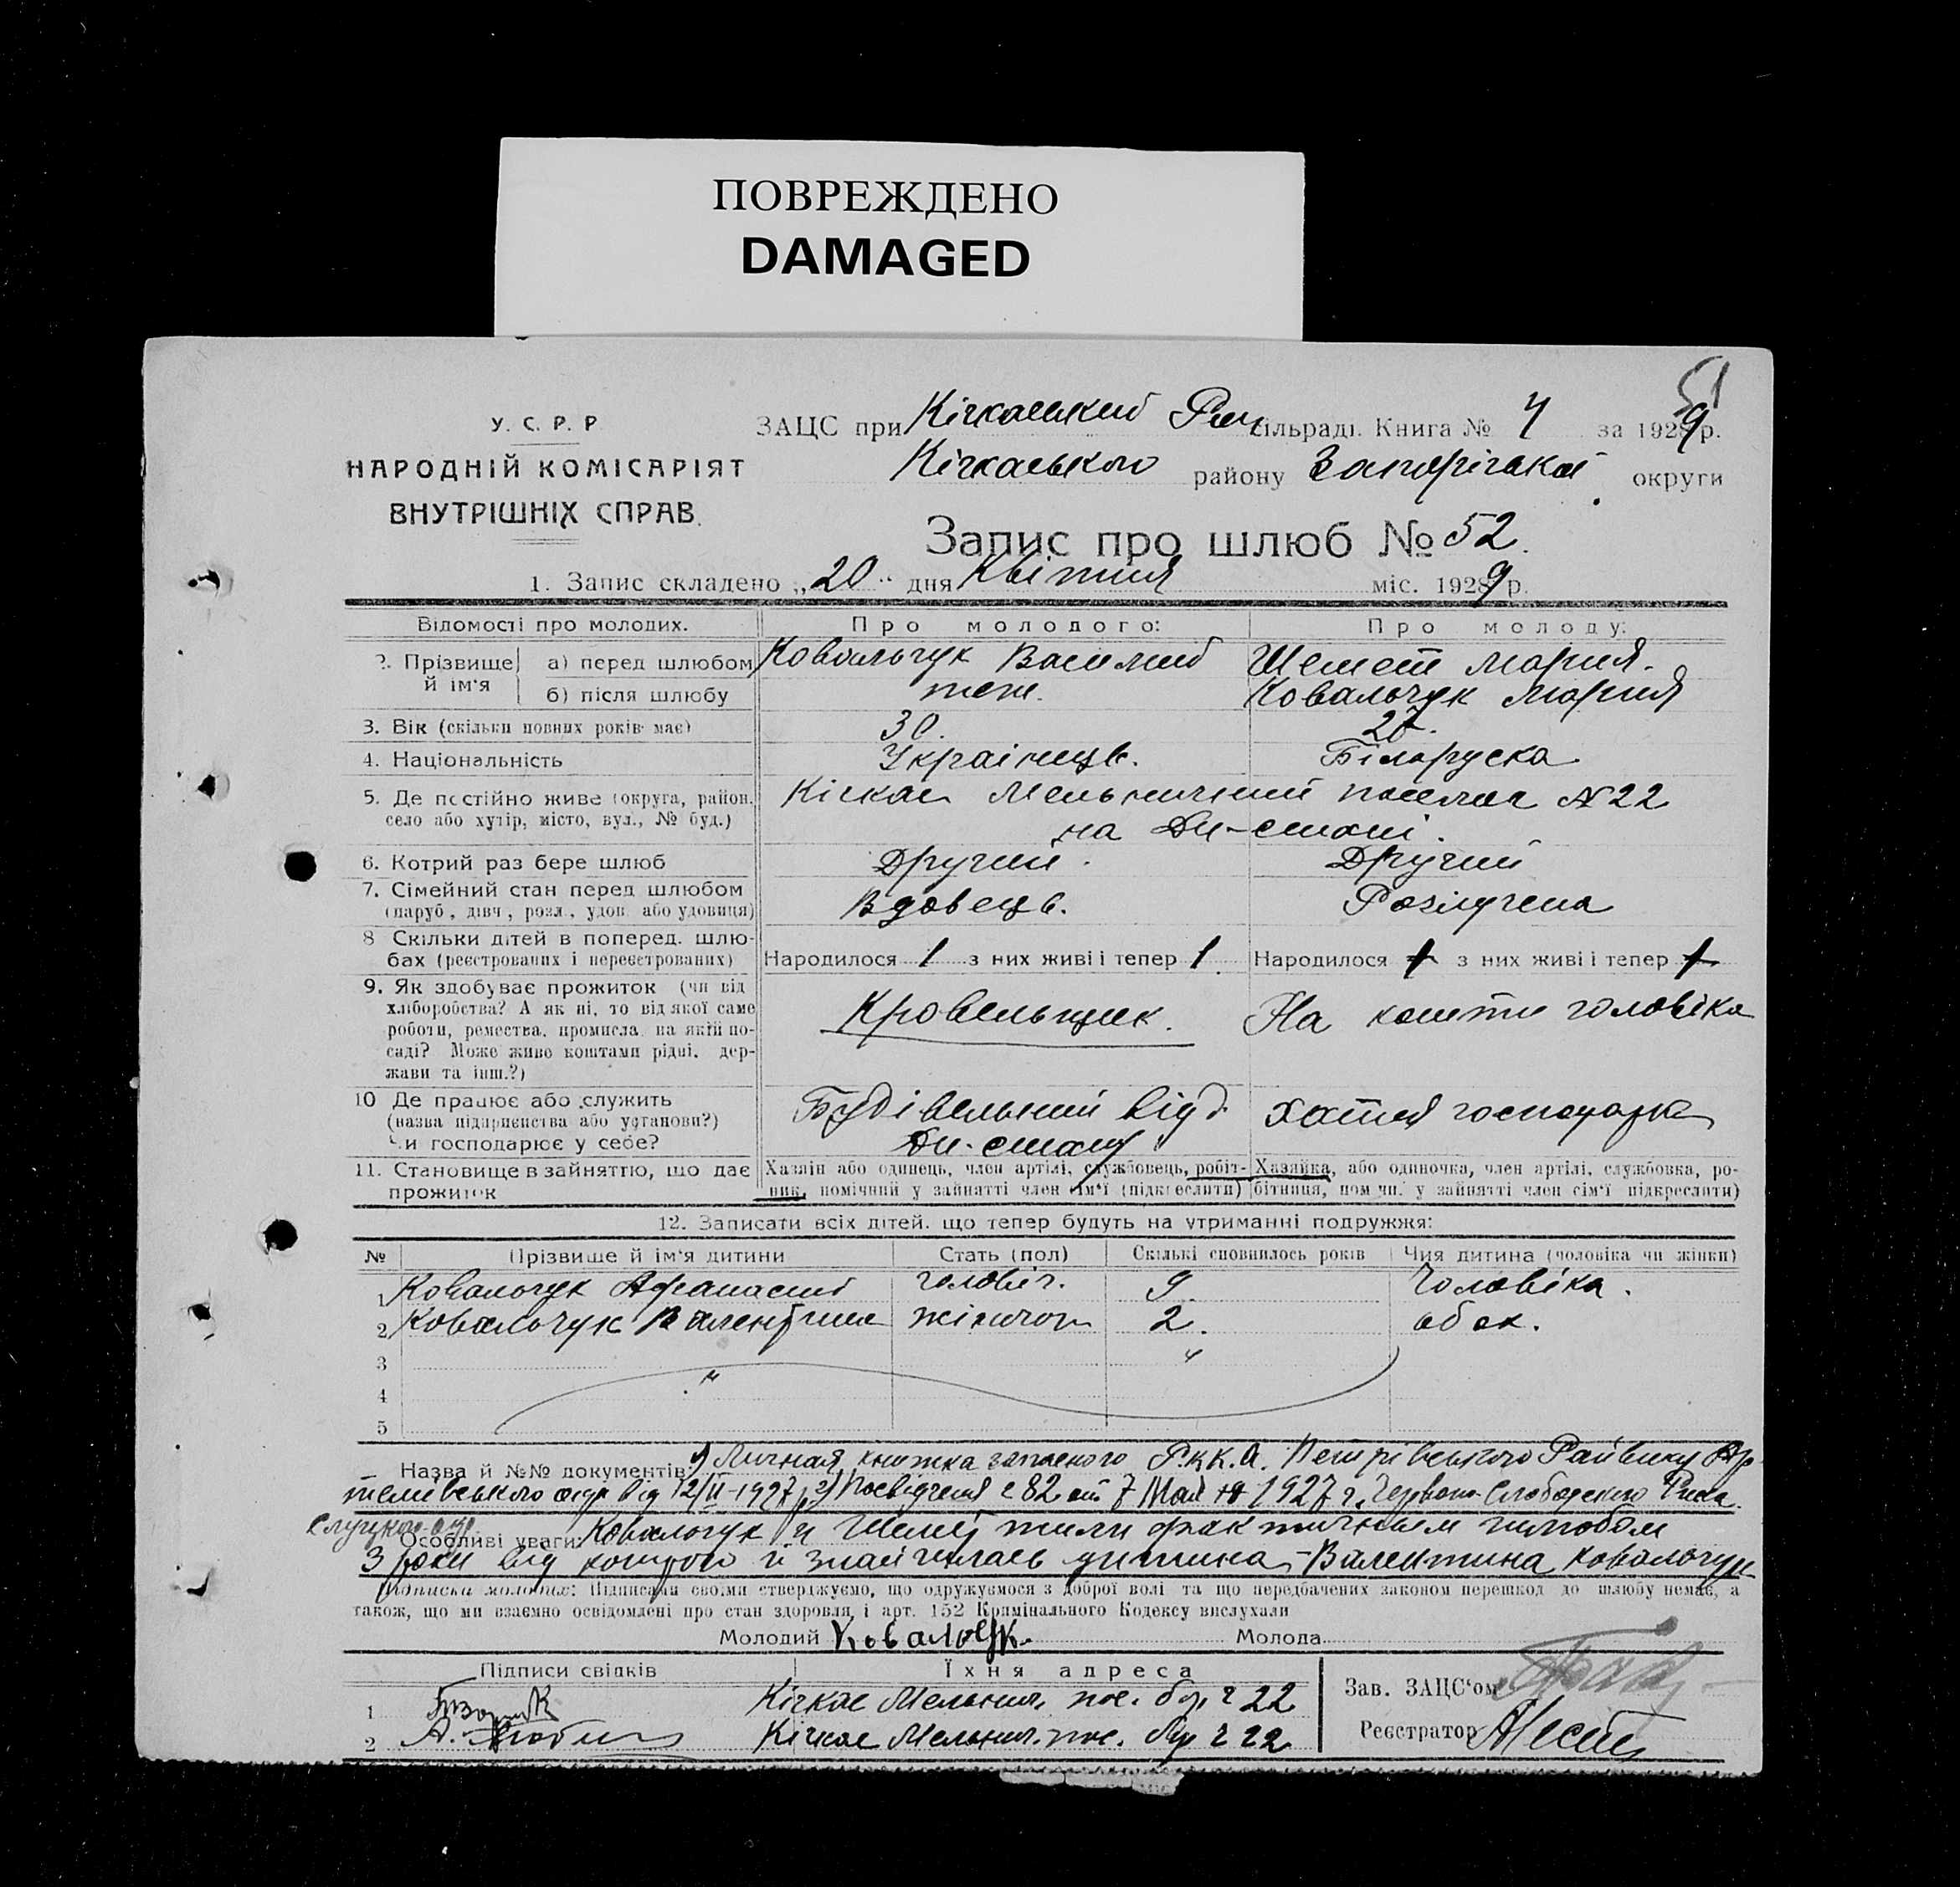 ПОВРЕЖДЕНО
DAMAGED
51
У. С. Р. Р
НАРОДНІЙ КОМІСАРІЯТ
ВНУТРІШНІХ СПРАВ.
ЗАЦС при Кічкаський сільраді. Книга № 4 за 1929 р.
Кічкаського району Запорізької округи
Запис про шлюб № 52.
1. Запис складено „20“ дня Квітня міс. 1929 р.
Відомості про молодих. Про молодого: Про молоду:
2. Прізвище й ім'я а) перед шлюбом Ковальчук Василий Шемет Мария.
б) після шлюбу теж. Ковальчук Мария
3. Вік (скільки повних років має) 30. 27.
4. Національність Українець. Білоруска
5. Де постійно живе (округа, район, село або хутір, місто, вул., № буд.) Кічкас Мельничний поселок N 22
на Дн-стані.
6. Котрий раз бере шлюб Другий. Другий
7. Сімейний стан перед шлюбом (паруб., дівч., розл., удов. або удовиця) Вдовець. Розлучена
8 Скільки дітей в поперед. шлюбах (реєстрованих і нереєстрованих) Народилося 1 з них живі і тепер 1. Народилося 1 з них живі і тепер 1
9. Як здобуває прожиток (чи від хліборобства? А як ні, то від якої саме роботи, ремества, промисла, на якій посаді? Може живе коштами рідні, держави та інш.?) Кровельщик. На кошти чоловіка
10 Де працює або служить (назва підприємства або установи?) Чи господарює у себе? Будівельний відд. Дн-стану Хатня господарка
11. Становище в зайняттю, що дає прожиток Хазяїн або одинець, член артілі, службовець, робітник, помічний у зайнятті член сім'ї (підкреслити) Хазяйка, або одиночка, член артілі, службовка, робітниця, помічн. у зайнятті член сім'ї підкреслити)
12. Записати всіх дітей, що тепер будуть на утриманні подружжя:
№ Прізвище й ім'я дитини Стать (пол) Скількі сповнилось років Чия дитина (чоловіка чи жінки)
1 Ковальчук Афанасий чоловіч. 9. Чоловіка.
2 Ковальчук Валентина жіночої 2. обох.
3
4
5
Назва й №№ документів: 1) Личная книжка запасного Р.К.К.А. Петрівського Райвику
від 12/II-1927 р. 2) Посвідчення 82 от 7 Мая 1927 г. Червоно-Слободского
Особливі уваги: Ковальчук и Шемет жили фактичным шлюбом
3 роки від котрого й знайшлась дитина - Валентина Ковальчук
Підписи молодих: Підписами своїми стверджуємо, що одружуємося з доброї волі та що передбачених законом перешкод до шлюбу немає, а
також, що ми взаємно освідомлені про стан здоровля і арт. 152 Кримінального Кодексу вислухали
Молодий Ковальчук. Молода
Підписи свідків Їхня адреса
1 Кічкас Мельнич. пос. буд. ч 22 Зав. ЗАЦС'ом
2 Кічкас Мельнич. пос. буд. ч 22 Реєстратор